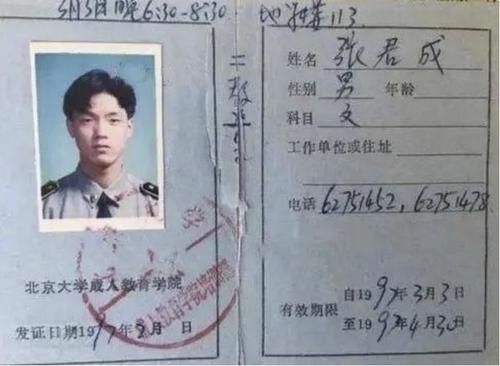 3月3日晚6:30-8:30
北京大学成人教育学院
发证日期1997年3月 日
地学楼113
姓名 张君成
性别 男 年龄
科目 文
工作单位或住址
电话 62751452，62751478
有效期限
自1997年3月3日
至1997年4月30日